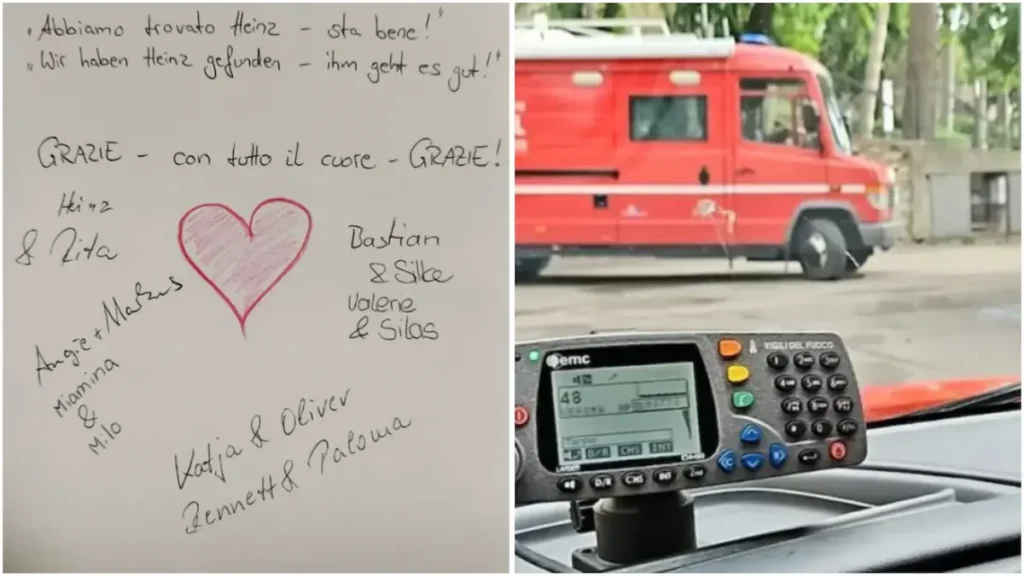 „Abbiamo trovato Heinz - sta bene!"
„Wir haben Heinz gefunden - ihm geht es gut!"
GRAZIE - con tutto il cuore - GRAZIE!
Heinz
& Rita
Bastian
& Silke
Valerie
& Silas
Angie + Markus
Miamina
&
Milo
Katja & Oliver
Bennett & Paloma
emc
VIGILI DEL FUOCO
48
D/R CHS INT
D/R CHS INT